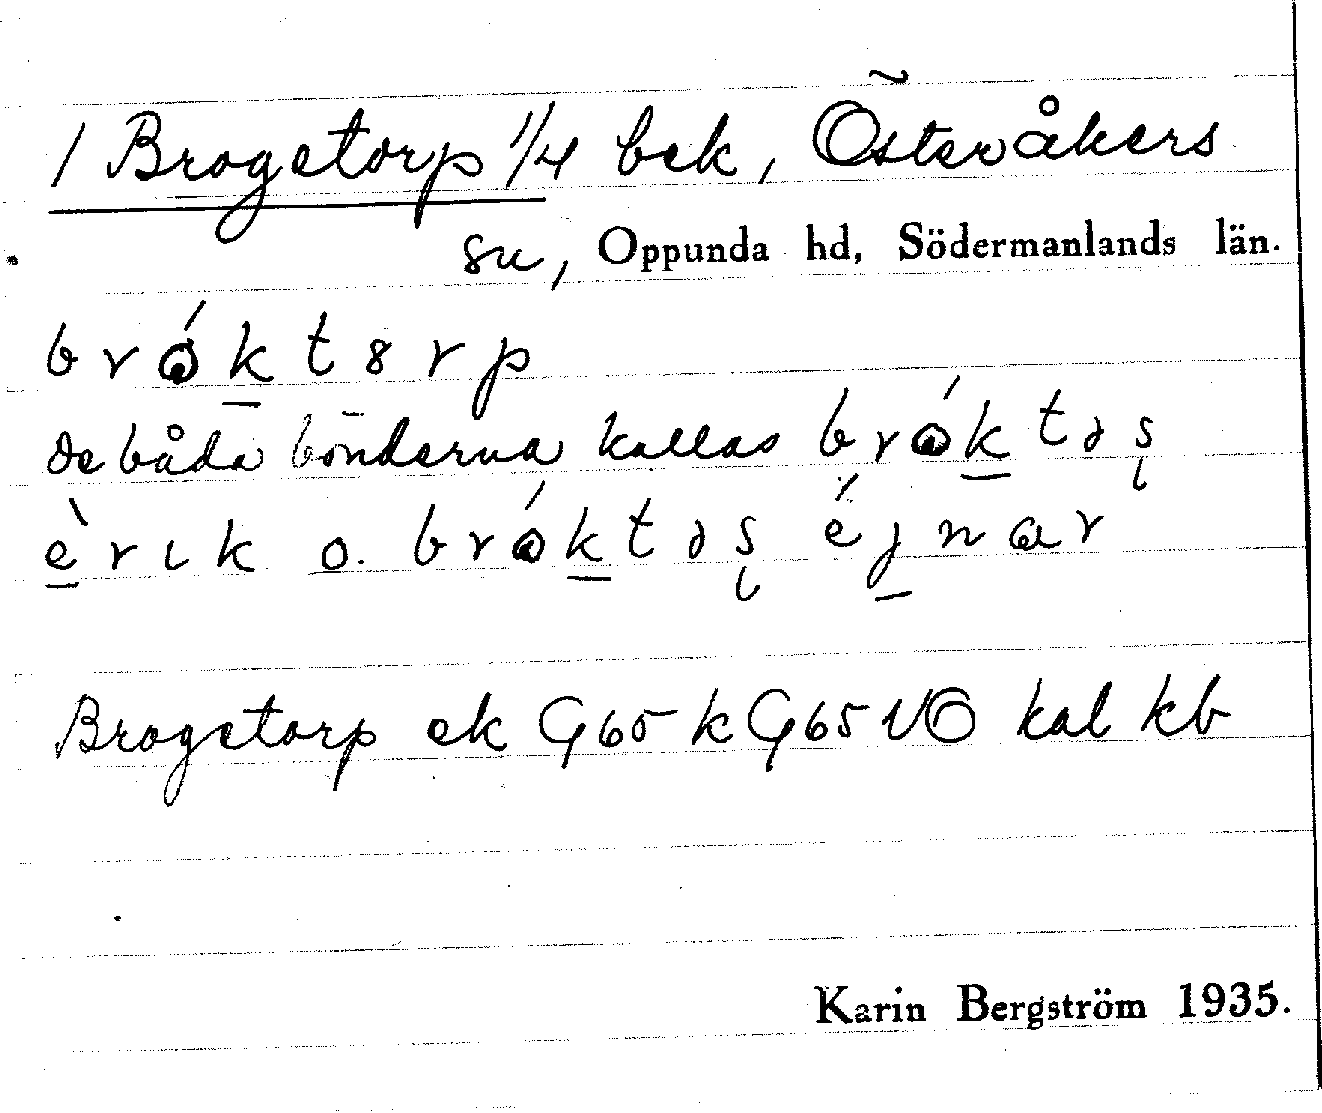 1 Brogetorp 1/4 bek, Österåkers
sn, Oppunda hd, Södermanlands län.
bròktɵrp
de båda bönderna kallas
èrik o. éjnar
Brogetorp ek G65 k G65 VÖ kal kb
Karin Bergström 1935.